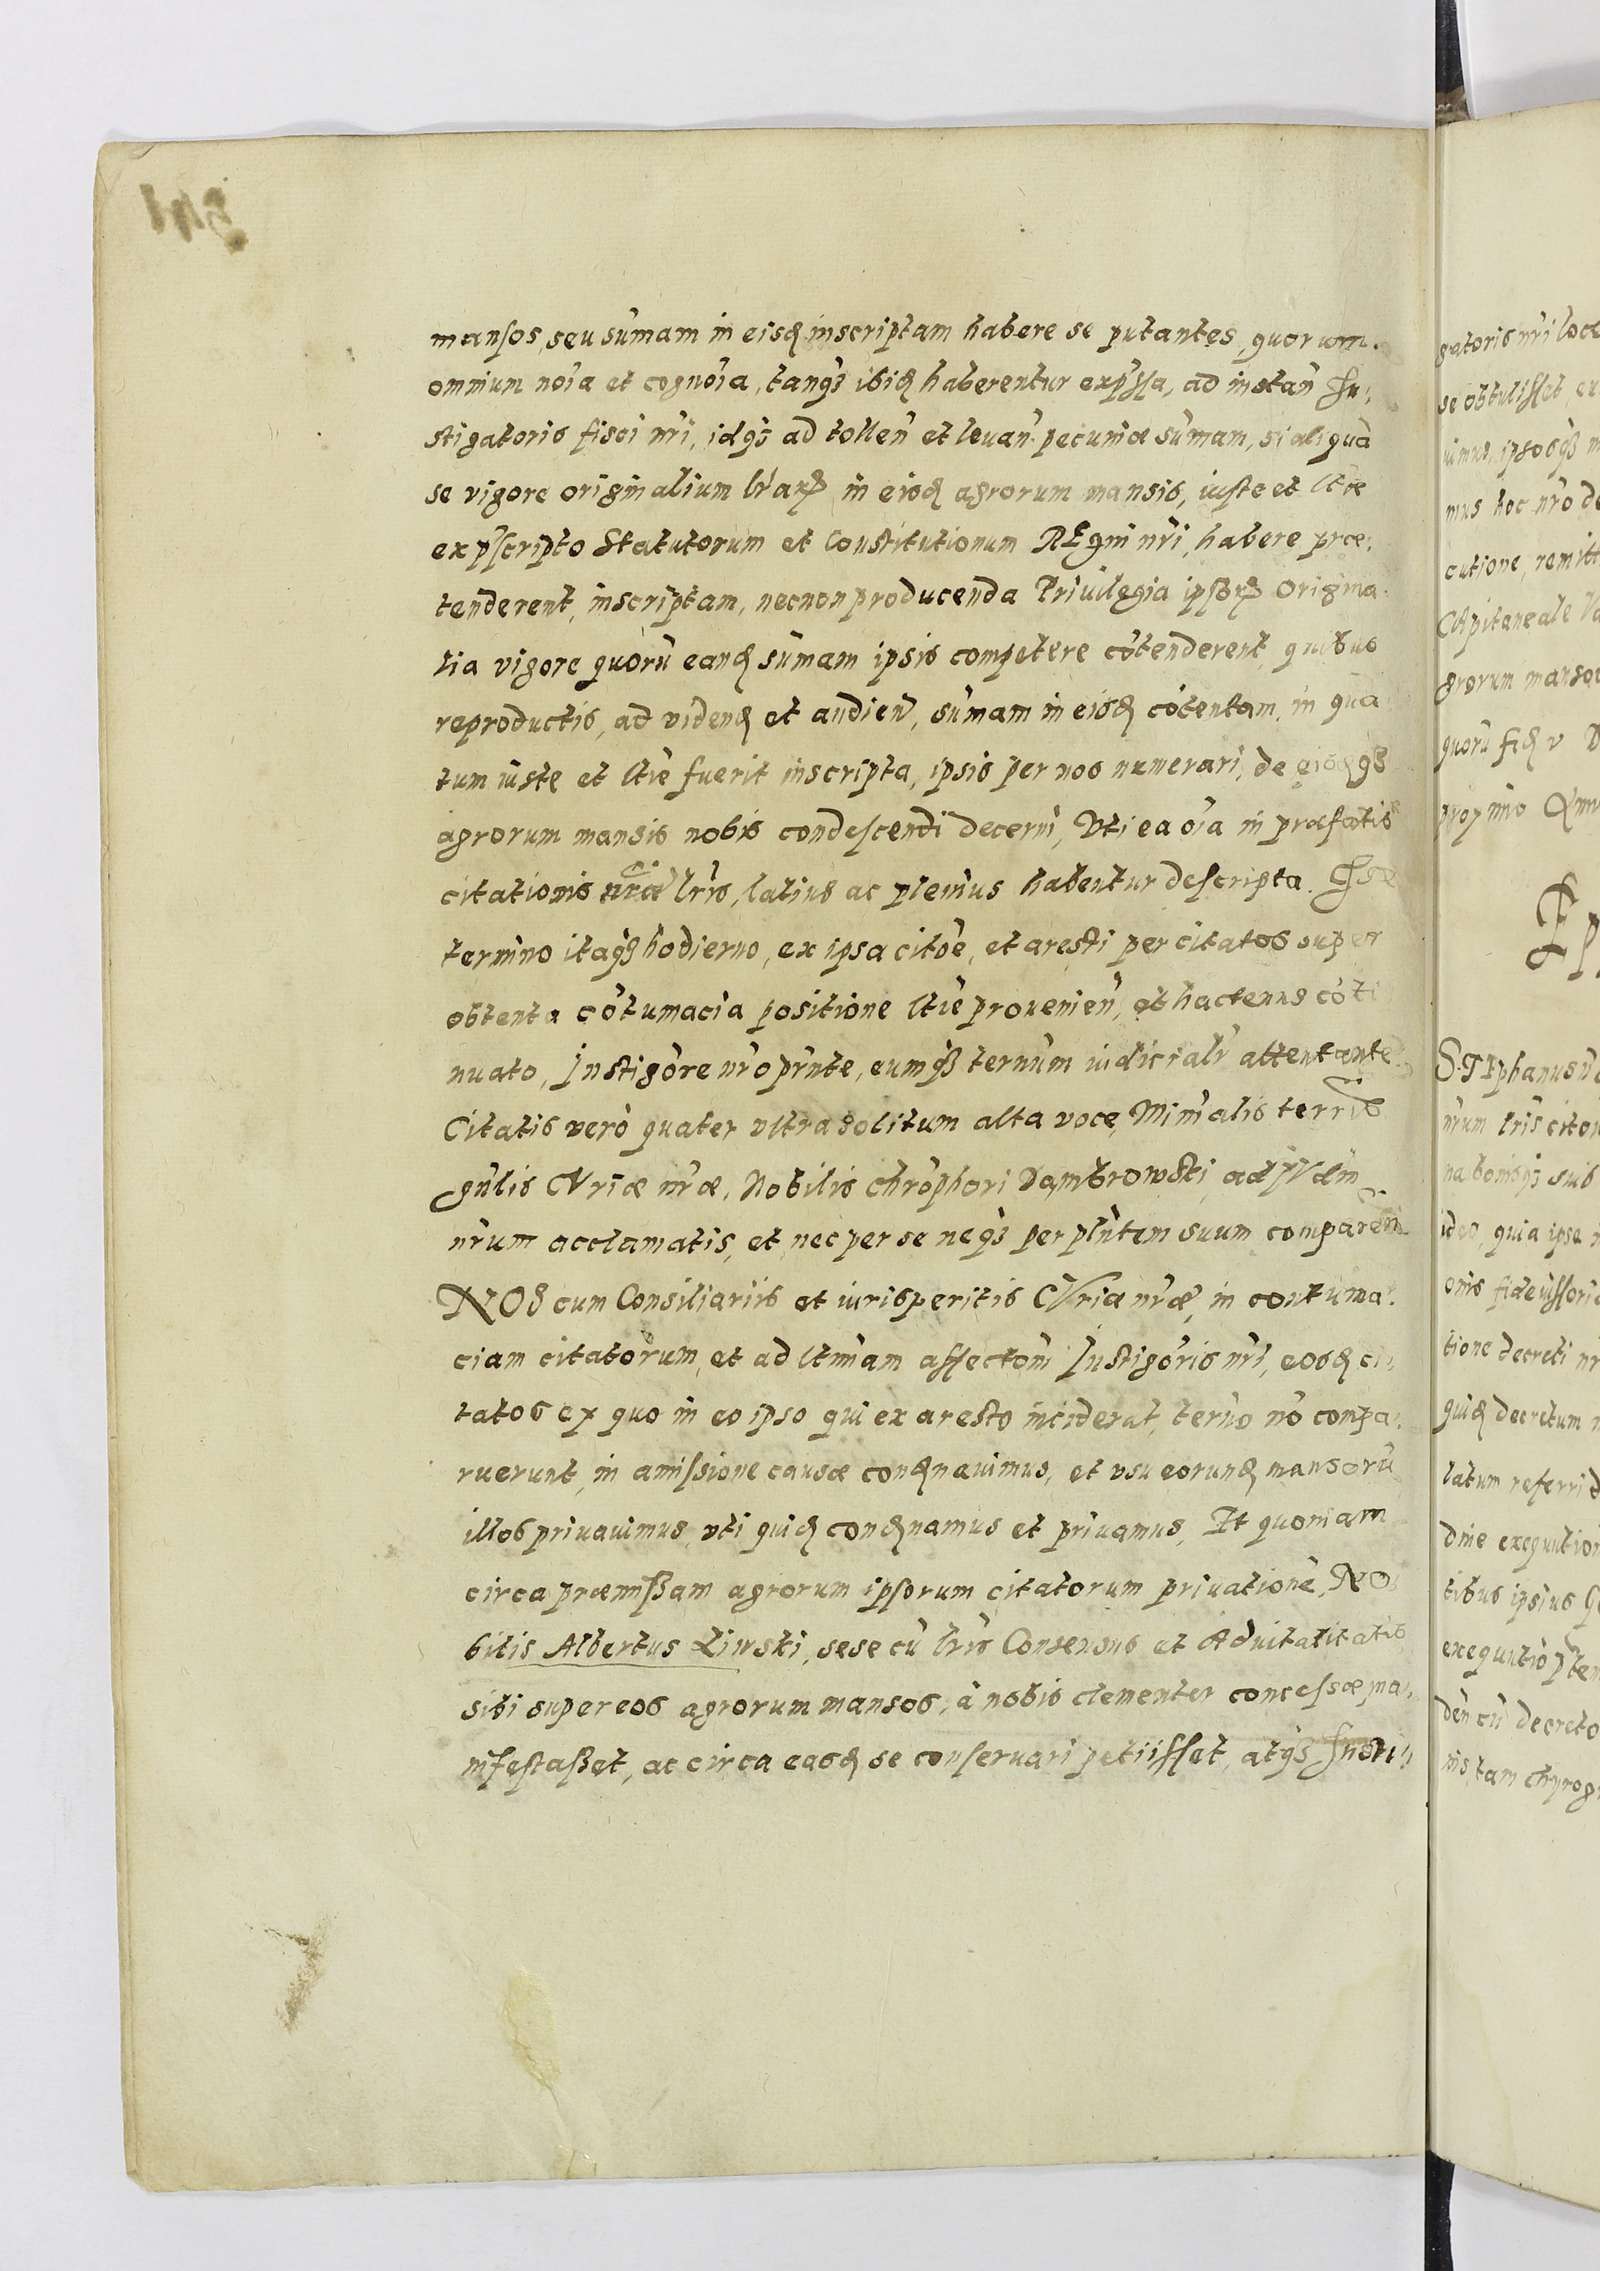 mansos, seu sum̃am in eisđ inscriptam habere se putantes, quorum
omnium noĩa et cognoĩa, tanq̃з ibiđ haberentur exp̃ssa, ad instañ In,
stigatoris fisci nr̃i, idq̃з ad tolleñ et leuañ pecuniæ sum̃am, si aliquã
se vigore originalium lr̃arꝝ in eisđ agrorum mansis, iuste et lt̃ie
ex p̃scripto Statutorum et Constitutionum REgni nr̃i, habere præ,
tenderent, inscriptam, necnon producenda Priuilegia ipsorꝝ Origina
lia vigore quorũ eanđ sum̃am ipsis competere cõtenderent, quibus
reproductis, ad videnđ et audień, sum̃am in eisđ cõtentam, in quã
tum iuste et lt̃ie fuerit inscripta, ipsis per nos numerari, de eisđqз
agrorum mansis nobis condescendi decerni, Vti ea oĩa in præfatis
citationis nr̃æ lr̃is, latius ac plenius habentur descripta. In
termino itaqз hodierno, ex ipsa citõe, et aresti per citatos super
obtenta cõtumacia positione lt̃ie prouenień, et hactenus cõti
nuato, Instigõre nr̃o prñte, eumqз ternũm iudicialr̃ attentante
Citatis verò quater vltra solitum alta voce, Minĩalis terris
gñlis CVriæ nr̃æ, Nobilis Chrõphori Dambrowski, ad
nr̃um acclamatis, et nec per se neqз per plñtem suum comparen
NOS cum Consiliariis et iurisperitis CVriæ nr̃æ, in contuma,
ciam citatorum, et ad ltmãm affectom̃ Instigõris nr̃i, eosđ ci,
tatos ex quo in eo ipso qui ex aresto inciderat, terño nõ compa,
ruerunt, in amissione causæ conđnauimus, et vsu eorunđ mansorũ
illos priuauimus, vti quiđ conđnamus et priuamus, Et quoniam
circa præmissam agrorum ipsorum citatorum priuationẽ, NO
bilis Albertus Liwski, sese cũ lr̃is Consensus et Aduitalitatis
sibi super eos agrorum mansos, à nobis clementer concessæ ma,
nifestasset, ac circa easđ se conseruari petiisset, atqз Insti,
gatoris nr̃i
se obtulisset
ipsosqз
mus hoc nr̃o
cutione, remitt
CApitaneale
grorum manso
quorũ
S.TEphanus
nr̃um lr̃is
sub
ideo, quia ipse
onis fideiussori
tione decreti
quiđ decretum
latum referri
exequution
tibus ipsius
cũ decreto
nis, tam chyrogr